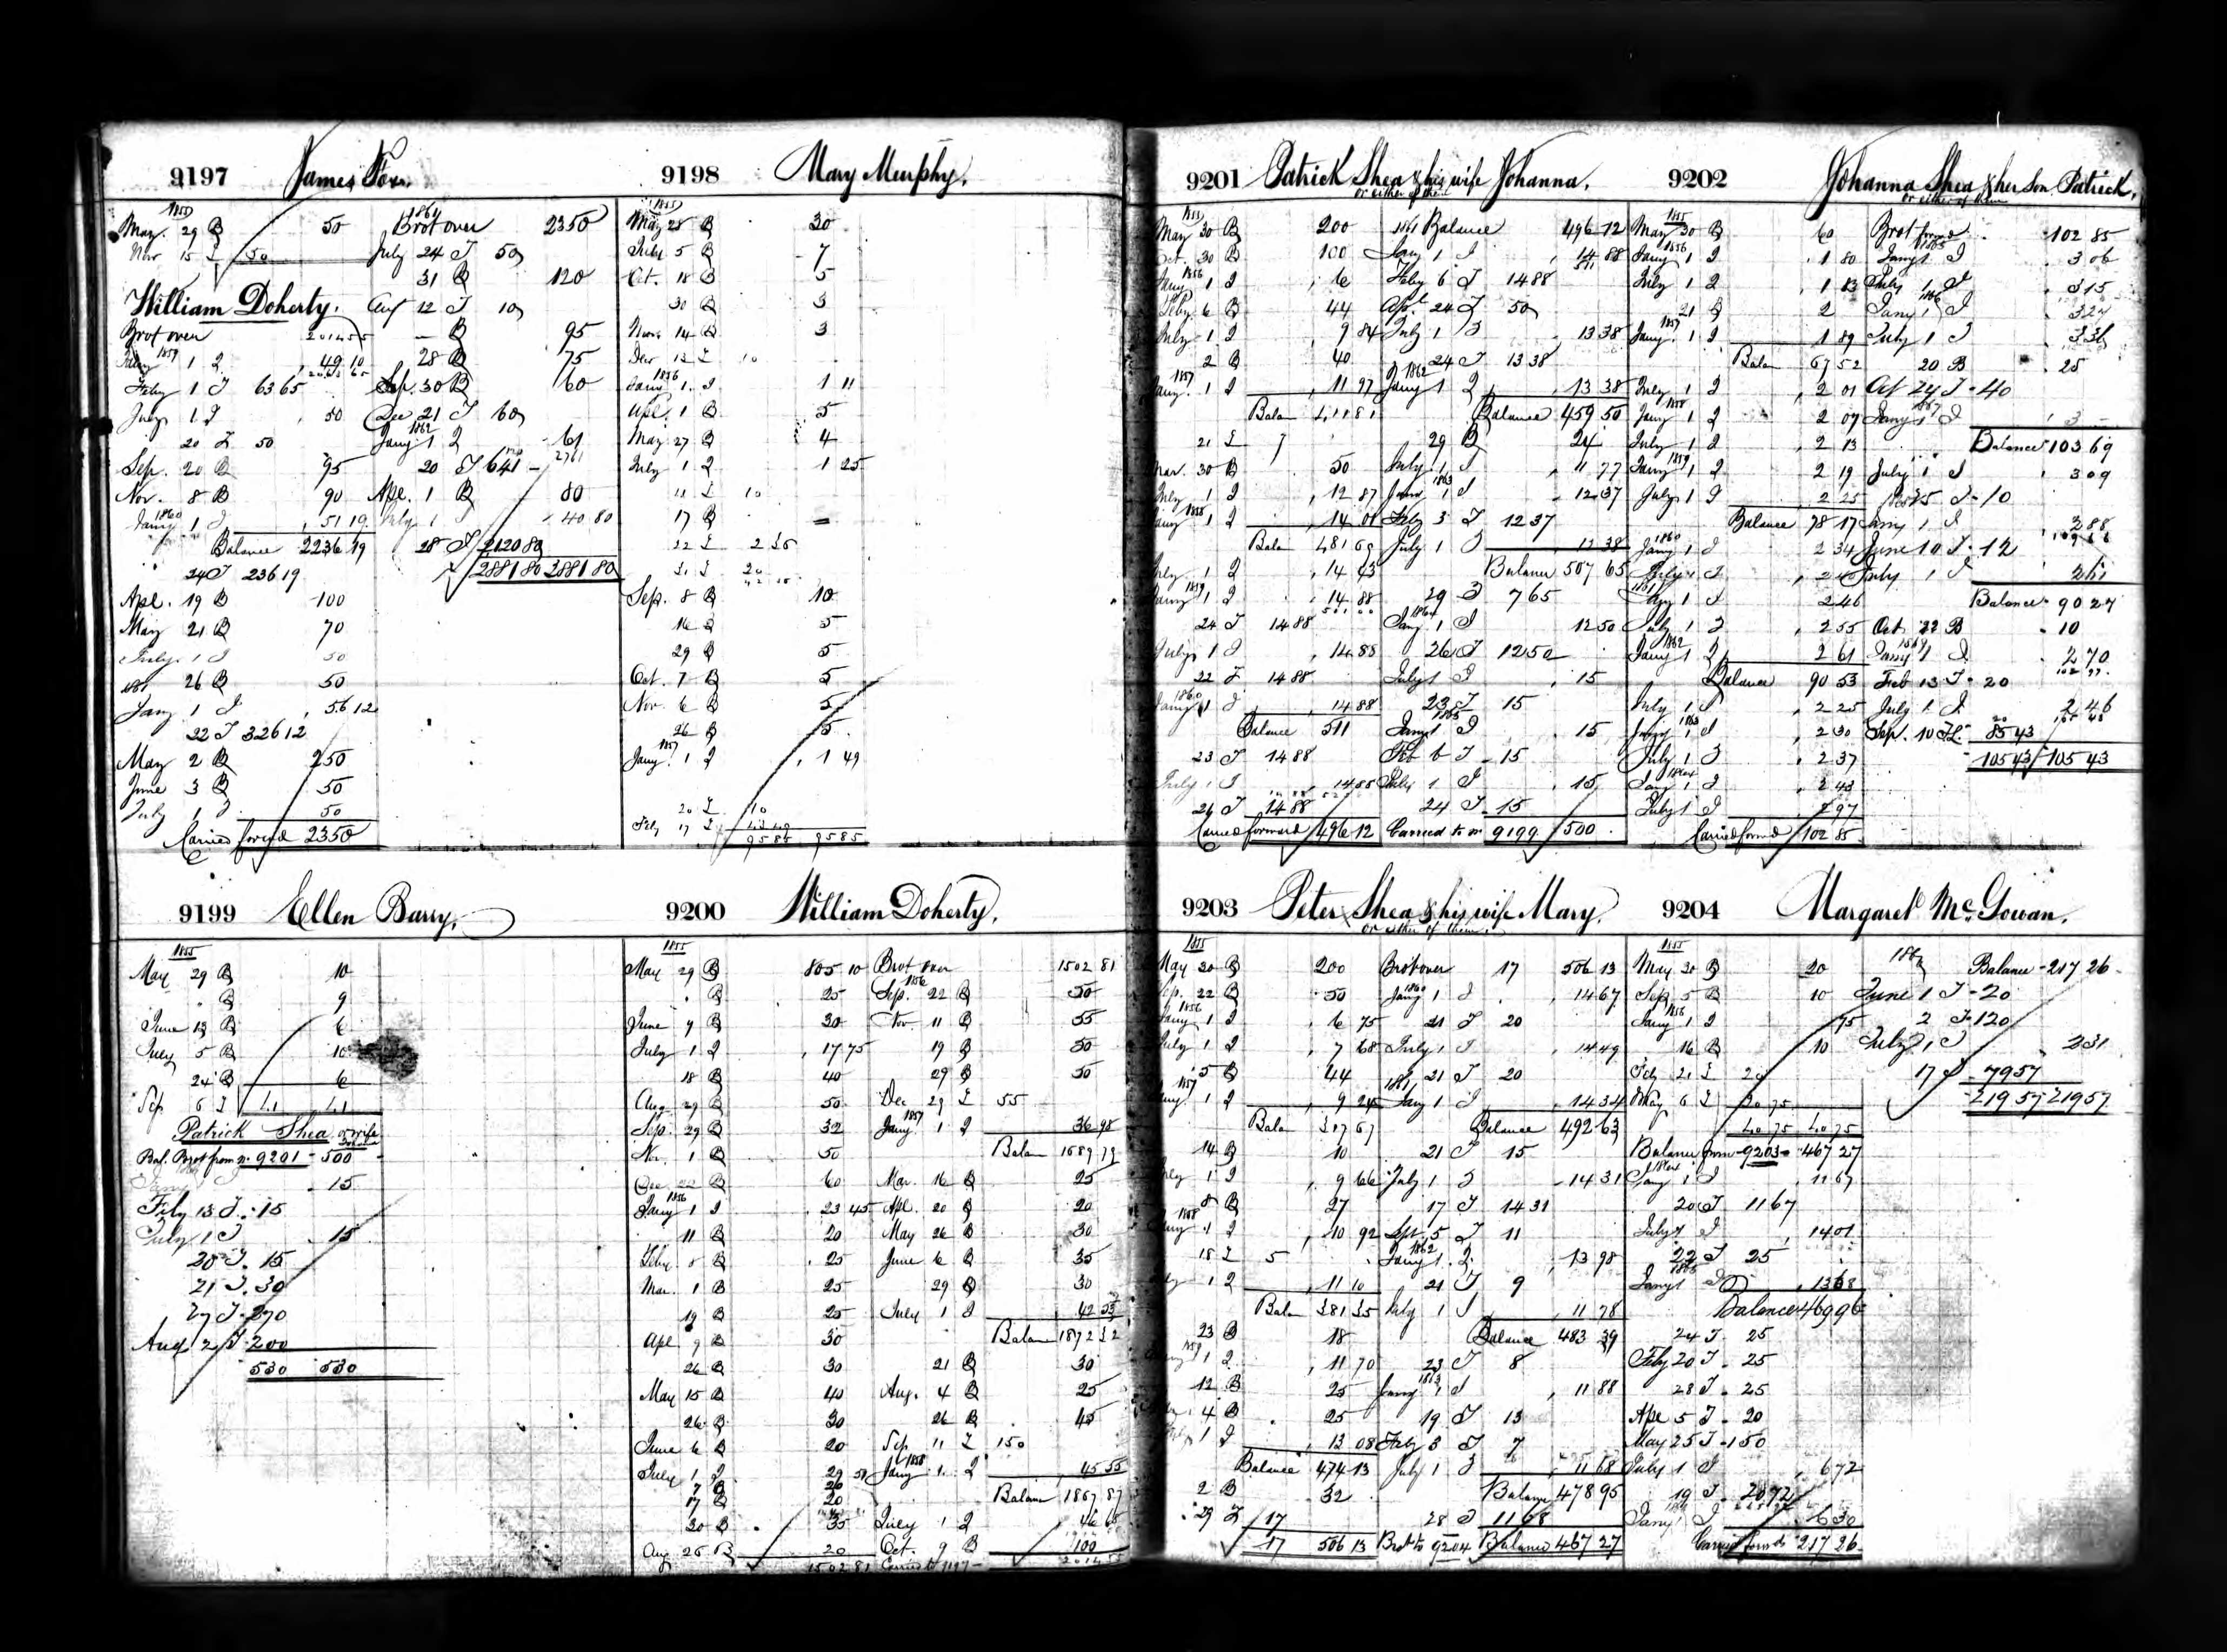 9197 James Fox.
1855
May. 29 B 50
Nov 15 50
William Doherty.
Brot over 2014 55
1859 1 49 10
Feby 1 T 63 65
July 1 I 50
20 50
Sep. 20 B 95
Nov. 8 B 90
1860
Jany 1 I 51 19
Balance 2236 19
24 T 236 19
Apl. 19 B 100
May 21 B 70
July 1 I 50
26 B 50
Jany 1 I 56 12
22 T 326 12
May 2 B 250
June 3 B 50
July 1 50
Carried forwd 2350
1861
Brot over 2350
July 24 T 50
31 B 120
Aug 12 T 10
B 95
28 B 75
Sep. 30 B 60
Dec 21 T 60
1862
Jany 1 61
20 T 641
Apl. 1 B 80
July 1 40 80
28 T 2120 80
2881 80 2881 80
9198 Mary Murphy.
1855
May 28 B 30
July 5 B 7
Oct. 18 B 5
30 B 3
Nov. 14 B 3
Dec 10
1856
Jany 1. 1 11
Apl. 1 B 5
May 27 B 4
July 1 1 25
11 10
17 B
Sep. 8 B 10
16 B 5
29 B 5
Oct. 7 B 5
Nov. 6 B 5
26 B 5
1857
Jany. 1 1 49
20 10
Feby 17
95 85 95 85
9199 Ellen Barry.
1855
May 29 B 10
" B 9
June 13 B 6
July 5 B 10
24 B 6
Sep 6 41 41
Patrick Shea or wife
Bal. Brot from no. 9201 500
Jany 15
Feby 13 T. 15
July 1 I 15
20 T. 15
21 T. 30
27 T. 270
Aug 2 T 200
530 530
9200 William Doherty.
1855
May 29 B 805 10
" B 25
June 9 B 30
July 1 17 75
18 B 40
Aug 29 B 50
Sep. 29 B 32
Nov. 1 B 50
Dec 22 B 60
1856
Jany 1 23 45
11 B 20
Feby 8 B 25
Mar. 1 B 25
19 B 25
Apl 9 B 30
26 B 30
May 15 B 40
26 B 30
June 6 B 20
July 1 29 51
17 B 20
30 B 35
Aug 26 B 20
1502 81
Brot over 1502 81
1856
Sep. 22 B 50
Nov. 11 B 55
19 B 50
29 B 50
Dec 29 55
1857
Jany 1 36 98
Balan 1689 79
Mar. 16 B 25
Apl. 20 B 20
May 26 B 30
June 6 B 35
29 B 30
July 1 42 53
Balan 1872 32
21 B 30
Aug. 4 B 25
26 B 45
Sep 11 150
1858
Jany 1 45 55
Balan 1867 87
July 1 46 68
Oct. 9 B 100
Carried to 9197 2014 55
9201 Patrick Shea & his wife Johanna.
or either of them
1855
May 30 B 200
Oct. 30 B 100
1856
Jany 1 6
Feby 6 B 44
July 1 9 84
2 B 40
1857
Jany. 1 11 97
Balan 411 81
21 7
Mar. 30 B 50
July 1 12 87
1858
Jany 1 14 01
Bala 481 69
July 1 14 43
1859
Jany 1 14 88
24 T 14 88
July 1 14 88
22 14 88
1860
Jany 1 14 88
Balance 511
23 T 14 88
July 1 14 88
26 T 14 88
Carried forward 496 12
1861 Balance 496 12
Jany 1 I 14 88
Feby 6 T 14 88
Apl. 24 T 50
July 1 13 38
24 T 13 38
1862
Jany 1 13 38
Balance 459 50
29 B 24
July 1 11 77
1863
Jany 1 12 37
Feby 3 T 12 37
July 1 12 38
Balance 507 65
29 7 65
1864
Jany 1 I 12 50
26 T 12 50
July 1 I 15
23 T 15
1865
Jany 1 I 15
Feb 6 T 15
July 1 I 15
24 T 15
Carried to no 9199 500
9202 Johanna Shea & her Son Patrick.
or either of them
1855
May 30 B 60
1856
Jany 1 1 80
July 1 1 83
21 B 2
1857
Jany. 1 1 89
Balan 67 52
July 1 2 01
1858
Jany 1 2 07
July 1 2 13
1859
Jany 1 2 19
July 1 2 25
Balance 78 17
1860
Jany 1 I 2 34
July 1 I
1861
Jany 1 I 2 46
July 1 2 55
1862
Jany 1 2 61
Balance 90 53
July 1 2 25
1863
Jany 1 2 30
July 1 2 37
1864
Jany 1 2 43
July 1 I 2 97
Carried forwd 102 85
Brot forwd 102 85
1865
Jany 1 I 3 06
July 1 I 3 15
1866
Jany 1 I 3 24
July 1 I 3 36
20 B 25
Oct 24 T 40
1867
Jany 1 I 3
Balance 103 69
July 1 I 3 09
T 10
Jany 1 I 2 88
June 10 T 12
July 1 I 2 61
Balance 90 27
Oct 22 B 10
1869
Jany 1 I 2 70
Feb 13 T 20
July 1 I 2 46
Sep. 10 85 43
105 43 105 43
9203 Peter Shea & his wife Mary.
or either of them.
1855
May 30 B 200
Sep. 22 B 50
1856
Jany 1 6 75
July 1 7 68
5 B 44
1857
Jany. 1 9 24
Bala 317 67
14 B 10
July 1 9 66
8 B 27
1858
Jany 1 10 92
18 5
July 1 11 10
Balan 381 35
23 B 18
1859
Jany 1 11 70
12 B 25
4 B 25
July 1 13 08
Balance 474 13
2 B 32
29 17
17 506 13
Brot over 17 506 13
1860
Jany 1 14 67
21 T 20
July 1 14 49
21 T 20
1861
Jany 1 14 34
Balance 492 63
21 T 15
July 1 14 31
17 T 14 31
Sept. 5 T 11
1862
Jany 1. 13 98
21 T 9
July 1 11 78
Balance 483 39
23 T 8
1863
Jany 1 11 88
19 T 13
Feby 3 T 7
July 1 11 68
Balance 478 95
28 11 68
Brot to 9204 Balance 467 27
9204 Margaret McGowan.
1855
May 30 B 20
Sep 5 B 10
1856
Jany 1 75
16 B 10
Feby 21 20
May 6 20 75
40 75 40 75
Balance from 9203 467 27
1864
Jany 1 I 11 67
20 T 11 67
July 1 I 14 01
22 T 25
1865
Jany 1 13 68
Balance 469 96
24 T 25
Feby 20 T 25
28 T 25
Apl 5 T 20
May 25 T 150
July 1 I 6 72
19 T 20 72
Jany 1 I 6 30
Carried forwd 217 26
Balance 217 26
June 1 T 20
2 T 120
July 1 I 2 31
17 79 57
219 57 219 57